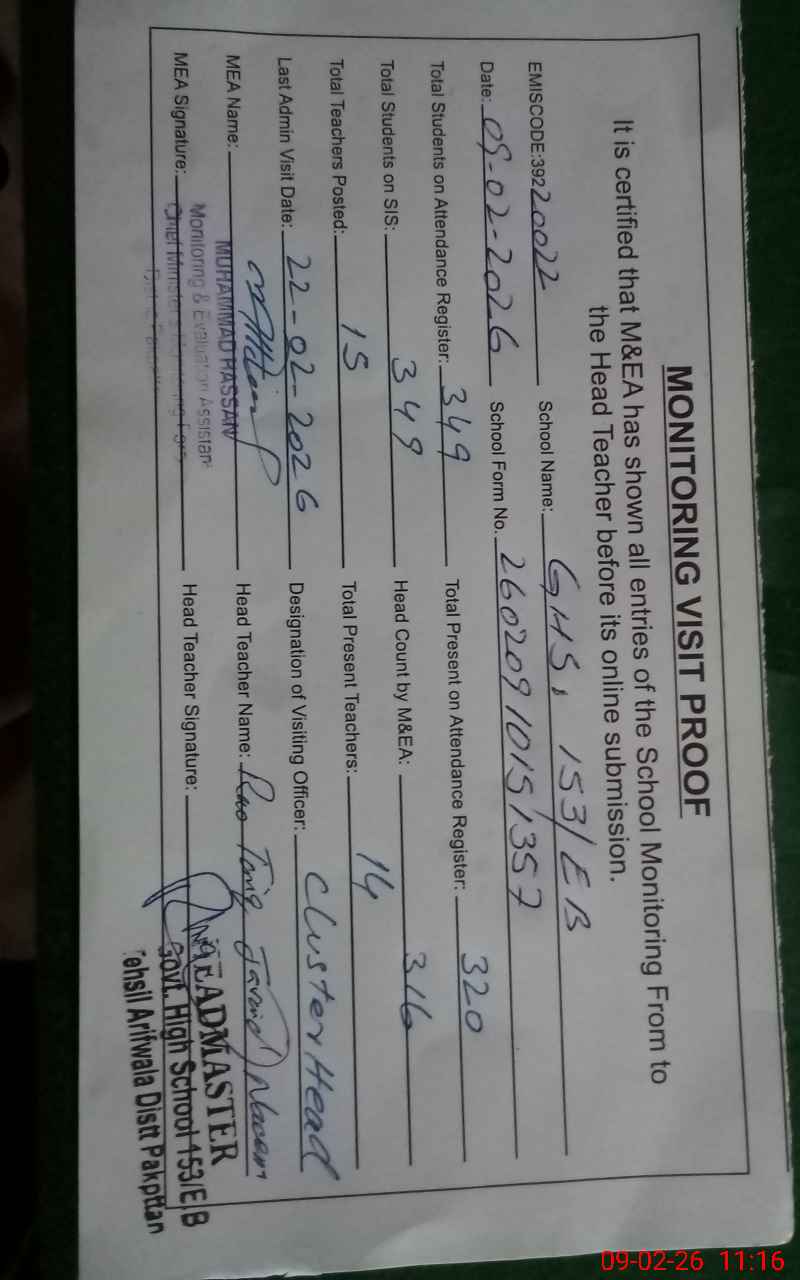 MONITORING VISIT PROOF
It is certified that M&EA has shown all entries of the School Monitoring From to
the Head Teacher before its online submission.
EMISCODE:39220022 School Name: GHS, 153/EB
Date: 09-02-2026 School Form No. 260209101513 57
Total Students on Attendance Register: 349 Total Present on Attendance Register: 320
Total Students on SIS: 349 Head Count by M&EA: 316
Total Teachers Posted: 15 Total Present Teachers: 14
Last Admin Visit Date: 22-02-2026 Designation of Visiting Officer: Cluster Head
MEA Name: MUHAMMAD HASSAN Head Teacher Name: Rao Tariq Javaid
Monitoring & Evaluation Assistan
MEA Signature: Head Teacher Signature:
HEADMASTER
Govt. High School 153/E.B
Tehsil Arifwala Distt Pakpttan
09-02-26 11:16